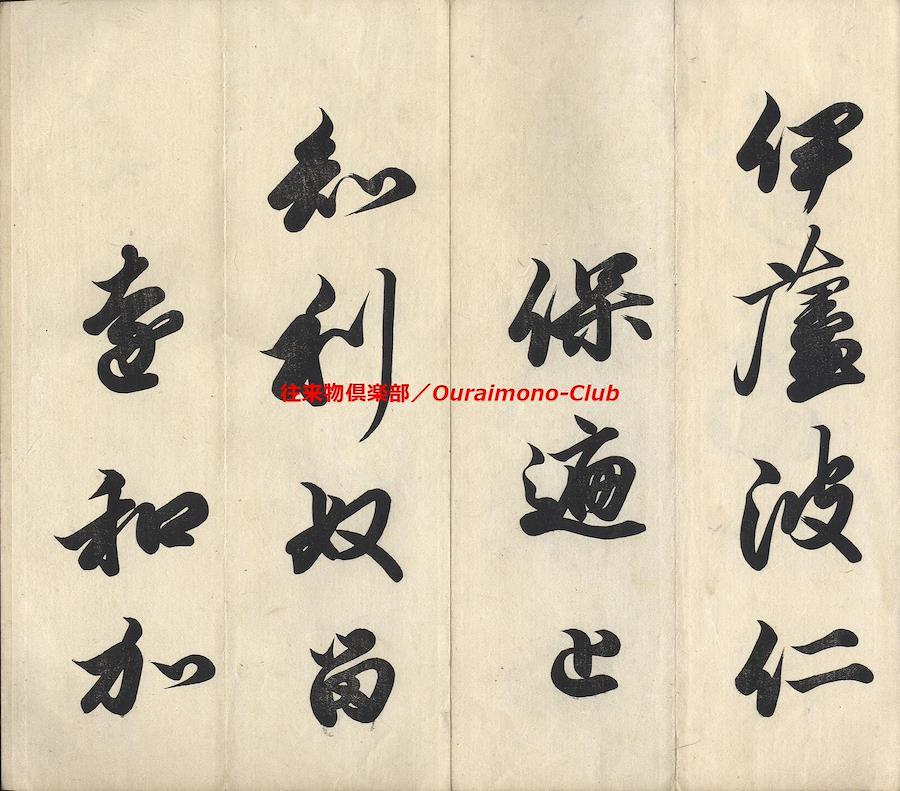 伊蘆波仁
保遍止
知利奴留
遠和加
往来物倶楽部／Ouraimono-Club